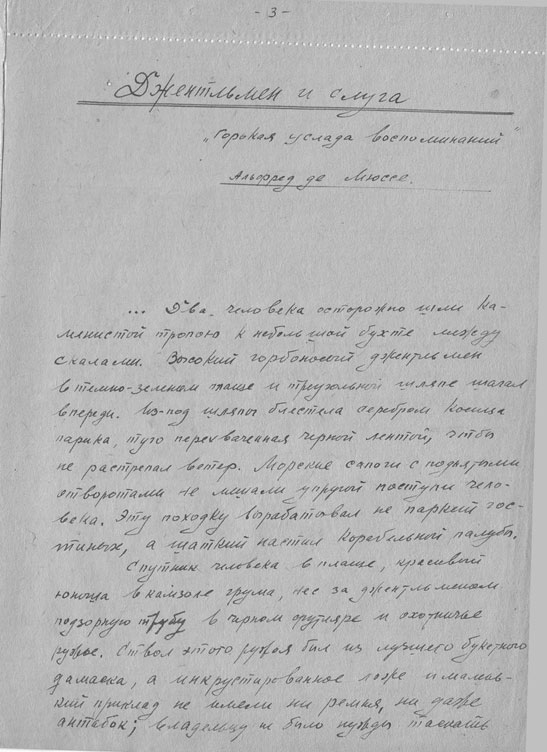 - 3 -
Джентльмен и слуга
„Горькая услада воспоминаний"
Альфред де Мюссе.
... Два человека осторожно шли ка-
менистой тропою к небольшой бухте между
скалами. Высокий горбоносый джентльмен
в темно-зеленом плаще и треугольной шляпе шагал
впереди. Из-под шляпы блестела серебром косица
парика, туго перехваченная черной лентой, чтобы
не растрепал ветер. Морские сапоги с поднятыми
отворотами не мешали упругой поступи чело-
века. Эту походку вырабатывал не паркет гос-
тиных, а шаткий настил корабельной палубы.
Спутник человека в плаще, красивый
юноша в камзоле грума, нес за джентльменом
подзорную трубу в черном футляре и охотничье
ружье. Ствол этого ружья был из лучшего букетного
дамаска, а инкрустированное ложе и
приклад не имели ни ремня, ни даже
антабок; владельцу не было нужды таскать